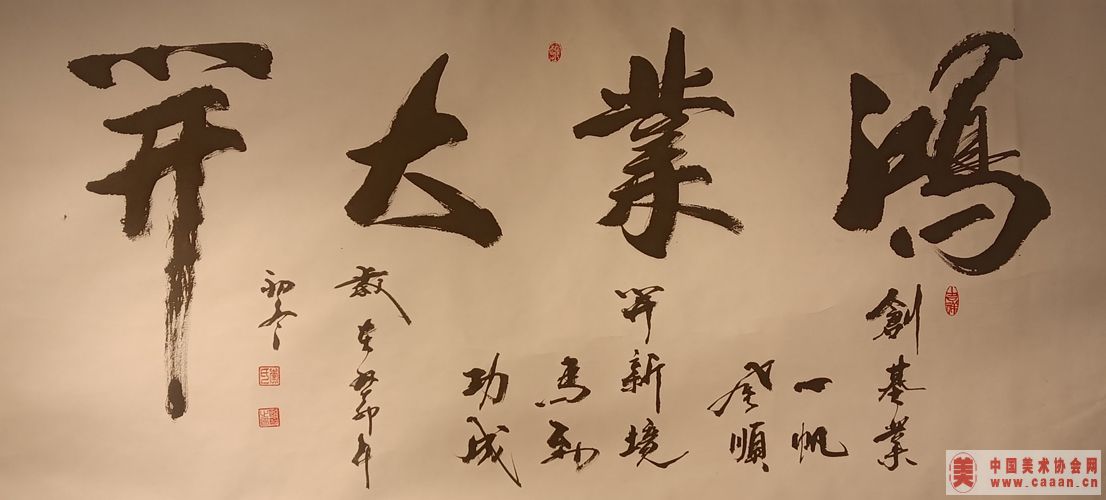 鴻業大開
創基業
一帆
風順
開新境
馬到
功成
歲在癸卯年
初冬
美
中国美术协会网
www.caaan.cn